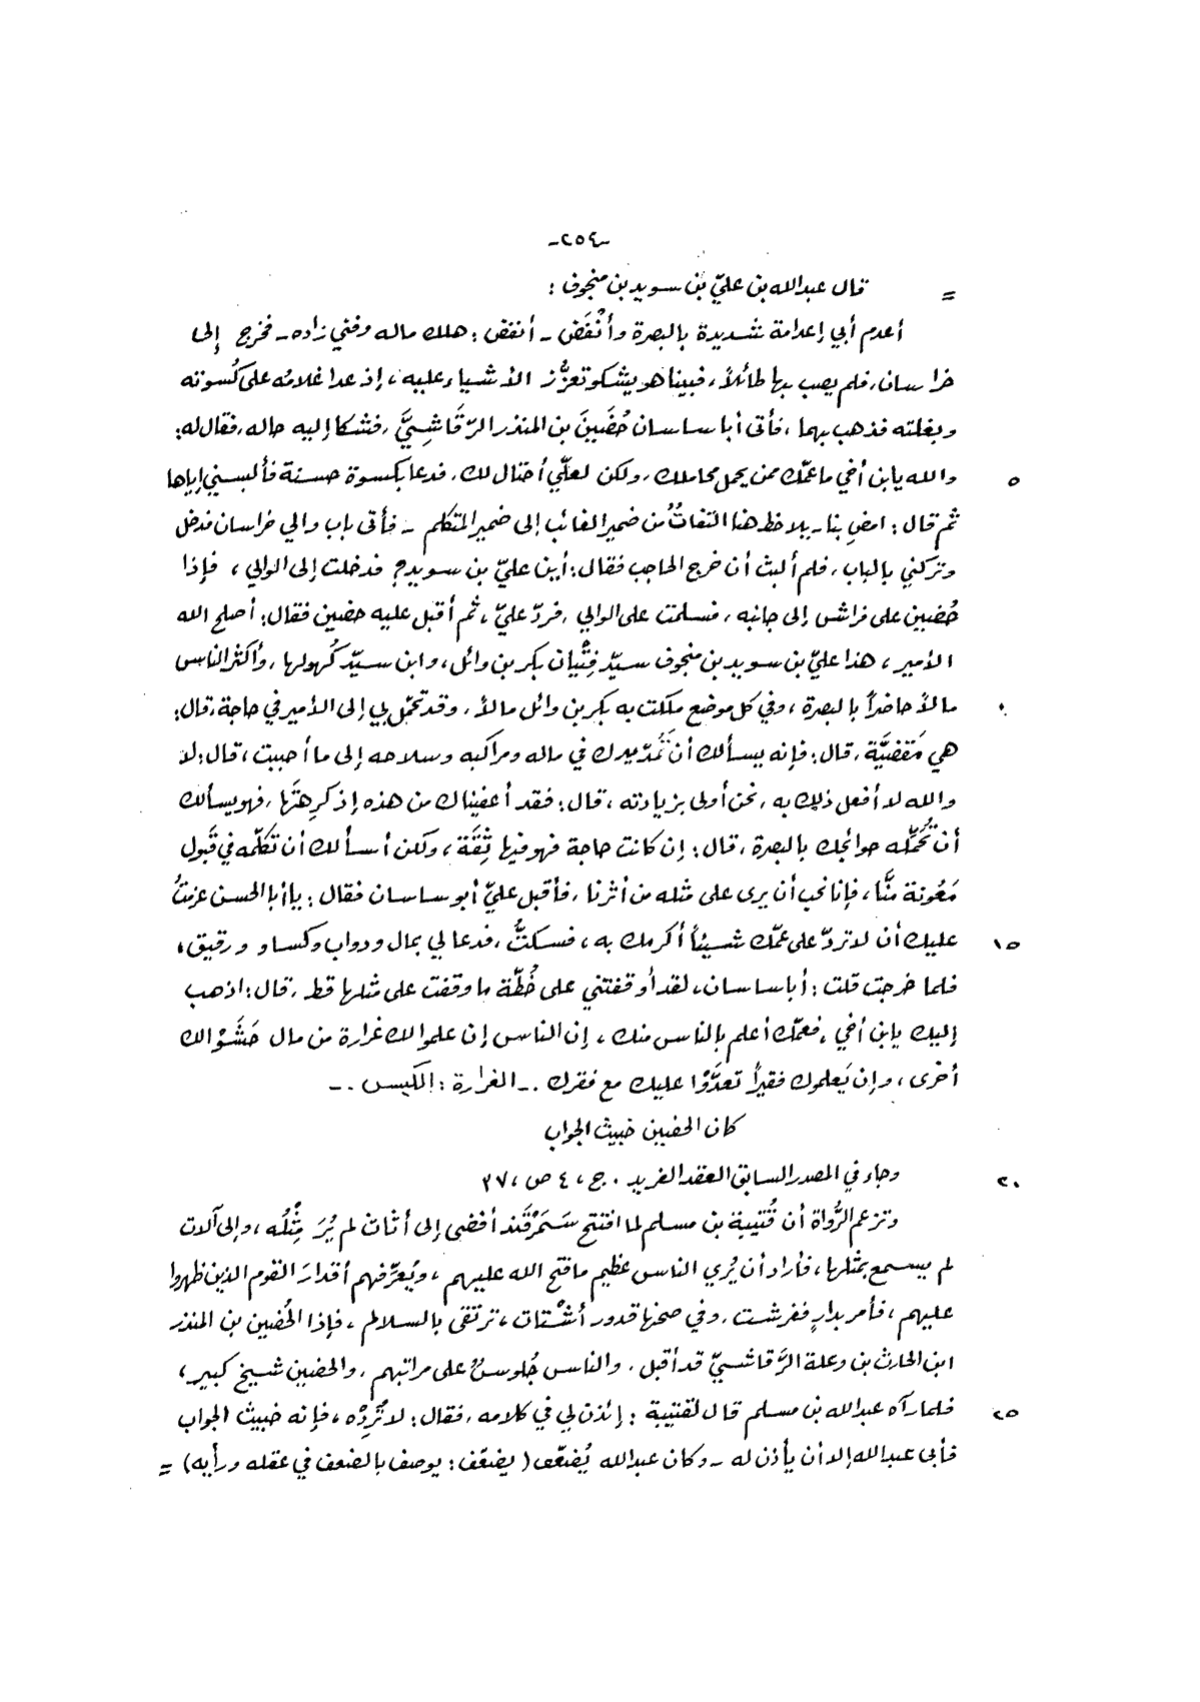 -٢٥٤-
= قال عبدالله بن عليّ بن سويد بن منجوف :
أعدم أبي إعدامة شديدة بالبصرة وأَنْفَضَ - أنفض : هلك ماله وفني زاده - فخرج إلى
خراسان، فلم يصب بها طائلاً، فبينا هو يشكو تعزُّز الأشياء عليه، إذ عدا غلامُه على كُسوته
وبغلته فذهب بهما، فأتى أبا ساسان حُضَينَ بن المنذر الرّقَاشِيَّ، فشكا إليه حاله، فقال له:
٥ والله يابن أخي ماعمّك ممن يحمل محاملك، ولكن لعلّي أحتال لك، فدعا بكسوة حسنة فألبسني إياها
ثم قال : امضِ بنا - يلاحظ هنا التفاتٌ من ضمير الغائب إلى ضمير المتكلم - فأتى باب والي خراسان فدخل
وتركني بالباب، فلم ألبث أن خرج الحاجب فقال: أين عليّ بن سويد؟ فدخلت إلى الوالي ، فإذا
حُضين على فراش إلى جانبه ، فسلمت على الوالي ، فردّ عليّ ، ثم أقبل عليه حضين فقال : أصلح الله
الأمير ، هذا عليّ بن سويد بن منجوف سيّد فِتْيان بكر بن وائل ، وابن سيّد كُهولها ، وأكثر الناس
١٠ مالاً حاضراً بالبصرة ، وفي كل موضع ملكت به بكر بن وائل مالاً ، وقد تحمّل بي إلى الأمير في حاجة، قال:
هي مَقضيَّة ، قال : فإنه يسألك أن تَمُدّ يدك في ماله ومراكبه وسلاحه إلى ما أحببت ، قال : لا
والله لا أفعل ذلك به ، نحن أولى بزيادته ، قال : فقد أعفيناك من هذه إذ كرِهتَها ، فهو يسألك
أن تُحَمِّله حوائجك بالبصرة ، قال : إن كانت حاجة فهو فيها ثِقَة ، ولكن أسألك أن تكلّمه في قَبول
مَعُونة منَّا ، فإنا نحب أن يرى على مثله من أثرنا ، فأقبل عليّ أبو ساسان فقال : يا أبا الحسن عزمتُ
١٥ عليك أن لا تردّ على عمّك شيئاً أكرمك به ، فسكتُّ ، فدعا لي بمال ودواب وكساو ورقيق ،
فلما خرجت قلت : أبا ساسان ، لقد أوقفتني على خُطّة ما وقفت على مثلها قط ، قال : اذهب
إليك يابن أخي ، فعمّك أعلم بالناس منك ، إن الناس إن علموا لك غرارة من مال حَشَوْا لك
أخرى ، وإن يَعلموك فقيراً تعدَّوْا عليك مع فقرك .- الغرارة : الكيس .-
كان الحضين خبيث الجواب
٢٠ وجاء في المصدر السابق العقد الفريد . ج ، ٤ ص ، ٣٧
وتزعم الرُّواة أن قُتيبة بن مسلم لما افتتح سَمَرْقَند أفضى إلى أثاث لم يُرَ مِثْلُه ، وإلى آلات
لم يسمع بمثلها ، فأراد أن يُري الناس عظيم ما فتح الله عليهم ، ويُعرّفهم أقدارَ القوم الذين ظهروا
عليهم ، فأمر بدارٍ ففرشت ، وفي صحنها قدور أشْتات ، ترتقى بالسلالم ، فإذا الحُضين بن المنذر
ابن الحارث بن وعلة الرَّقاشيّ قد أقبل ، والناس جُلوسٌ على مراتبهم ، والحضين شيخ كبير ،
٢٥ فلما رآه عبدالله بن مسلم قال لقتيبة : إئذن لي في كلامه ، فقال : لا تُرِدْه ، فإنه خبيث الجواب
فأبى عبدالله إلا أن يأذن له - وكان عبدالله يُضعّف ( يضعّف : يوصف بالضعف في عقله ورأيه ) =